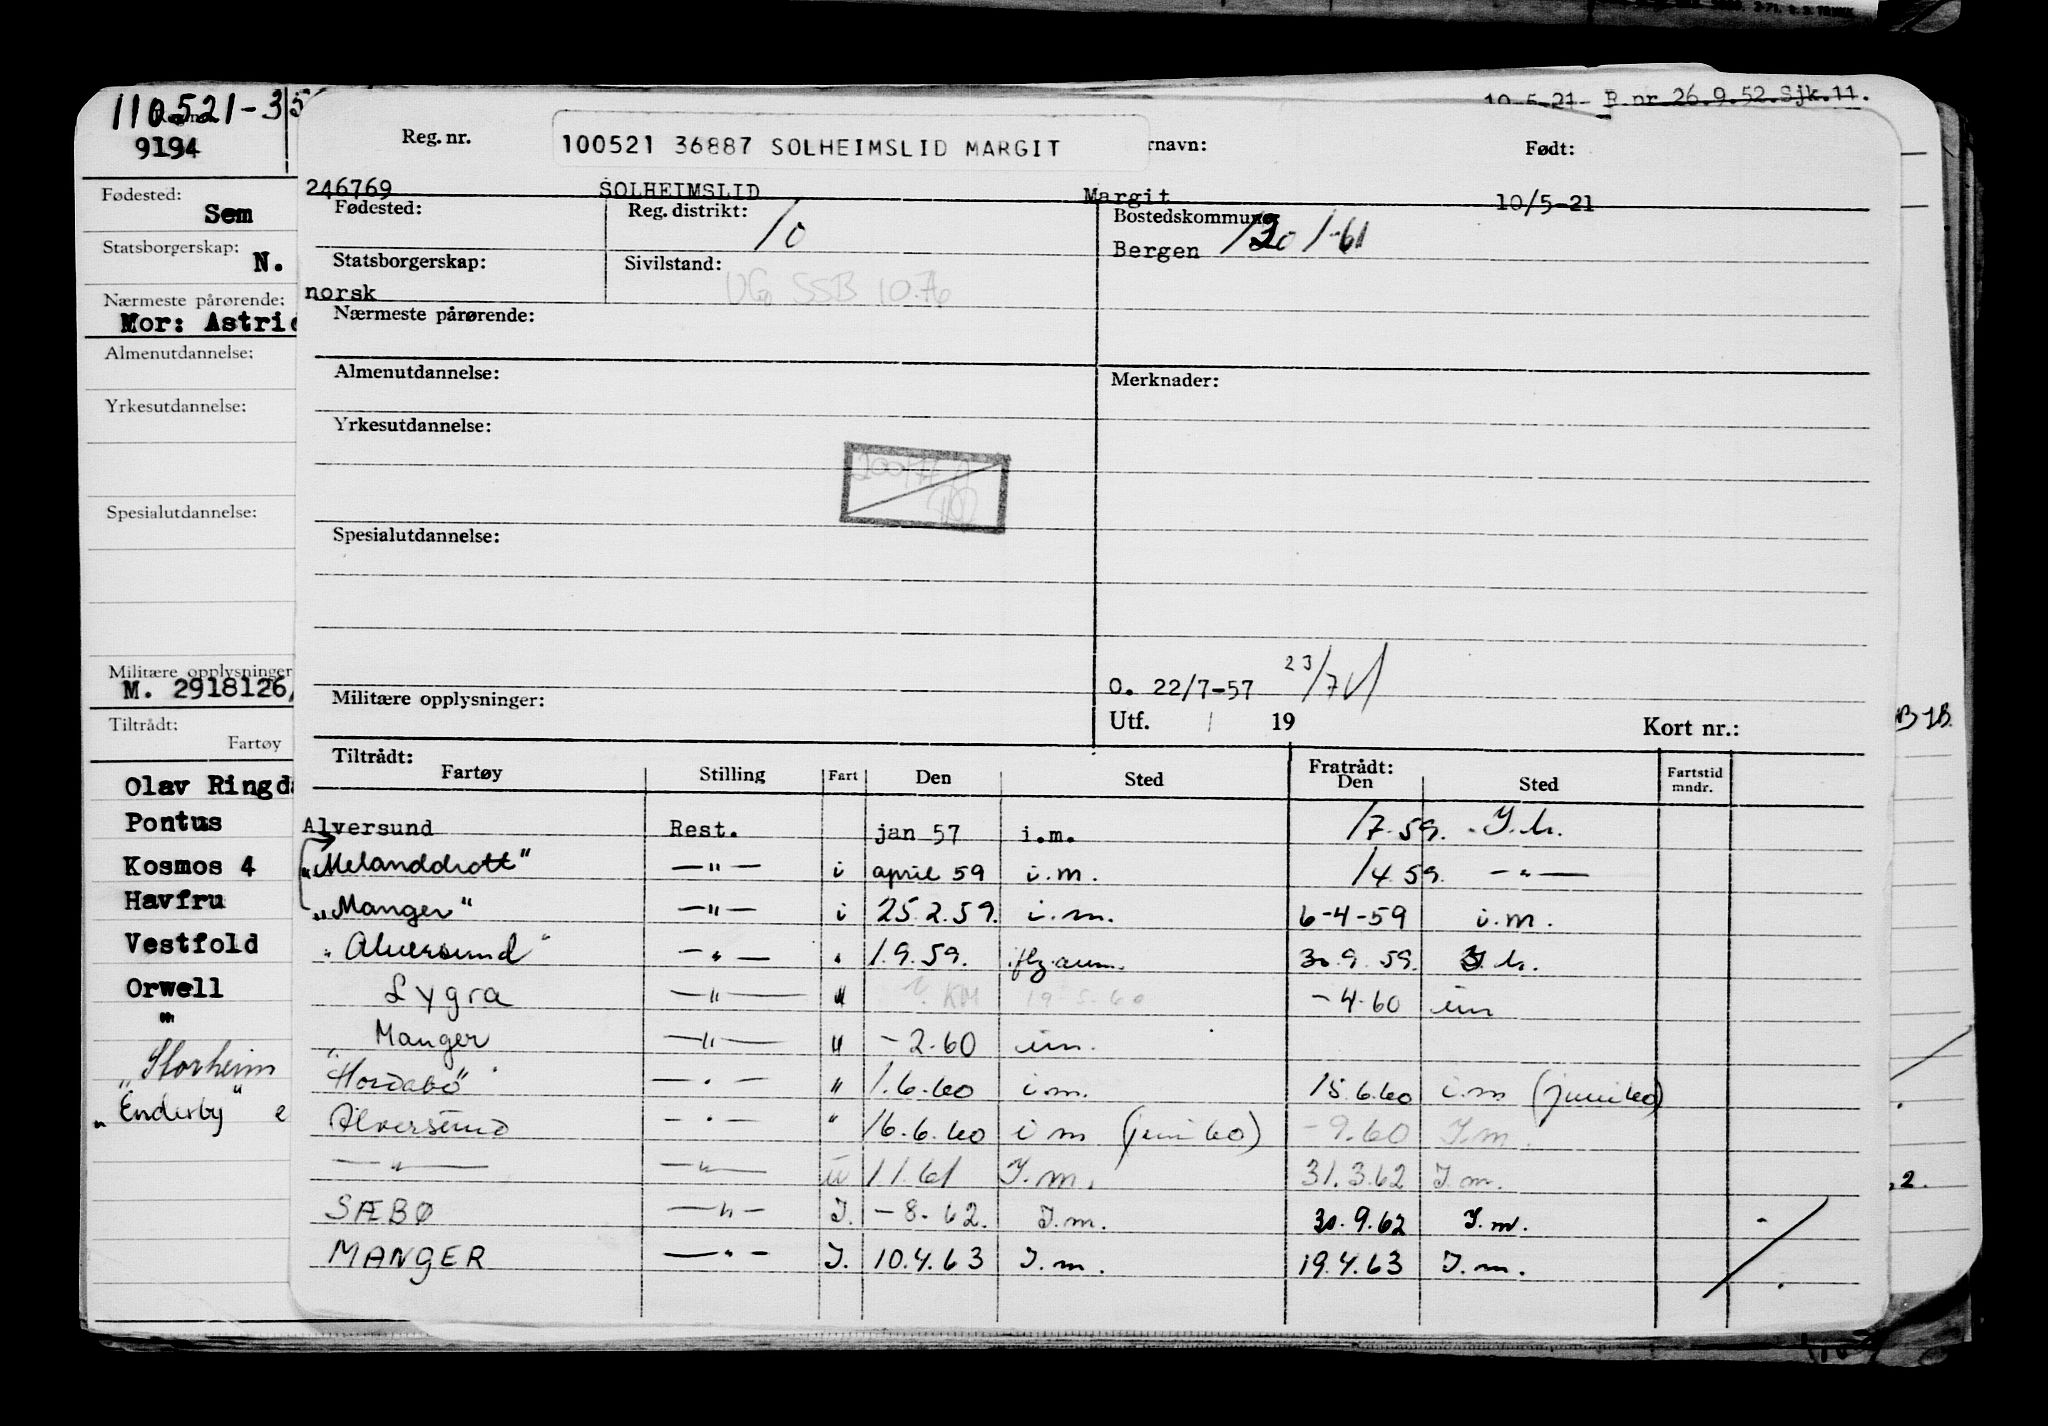 10-5-21- R nr 26.9.52.Sjk.11.
110521-35
9194
Fødested:
Sem
Statsborgerskap:
N.
Nærmeste pårørende:
Mor: Astrid
Almenutdannelse:
Yrkesutdannelse:
Spesialutdannelse:
Militære opplysninger
M. 2918126,
Tiltrådt:
Fartøy
Olav Ringd
Pontus
Kosmos 4
Havfru
Vestfold
Orwell
"
"Storheim
"Enderby" e
Reg. nr. 100521 36887 SOLHEIMSLID MARGIT rnavn: Født:
246769 SOLHEIMSLID Margit 10/5-21
Fødested: Reg. distrikt: 10 Bostedskommune
Bergen 1/1-61
Statsborgerskap: Sivilstand:
norsk UG SSB 10.76
Nærmeste pårørende:
Almenutdannelse: Merknader:
Yrkesutdannelse:
Spesialutdannelse:
O. 22/7-57 23/7
Militære opplysninger: Utf. / 19 Kort nr.:
Tiltrådt: Fratrådt:
Fartøy Stilling Fart Den Sted Den Sted Fartstid mndr.
Alversund Rest. jan 57 i.m. /7.59. I.h.
"Melanddrott" —"— i april 59 i.m. /4.59. —"—
"Manger" —"— i 25.2.59. i.m. 6-4-59 i.m.
"Alversund" —"— " 1.9.59. 30.9.59. I.h.
Lygra —"— " KM 19-5-60 -4.60 im
Manger —"— " -2.60 im.
"Hordabø" —"— " 1.6.60 i.m. 15.6.60 i.m (juni 60)
Alversund —"— " 16.6.60 i m (juni 60) -9.60 I.m.
—"— —"— " 1/1.61 I.m. 31.3.62 I.m.
SÆBØ —"— I. -8-62. I.m. 30.9.62 I.m. -
MANGER —"— I. 10.4.63 I.m. 19.4.63 I.m.